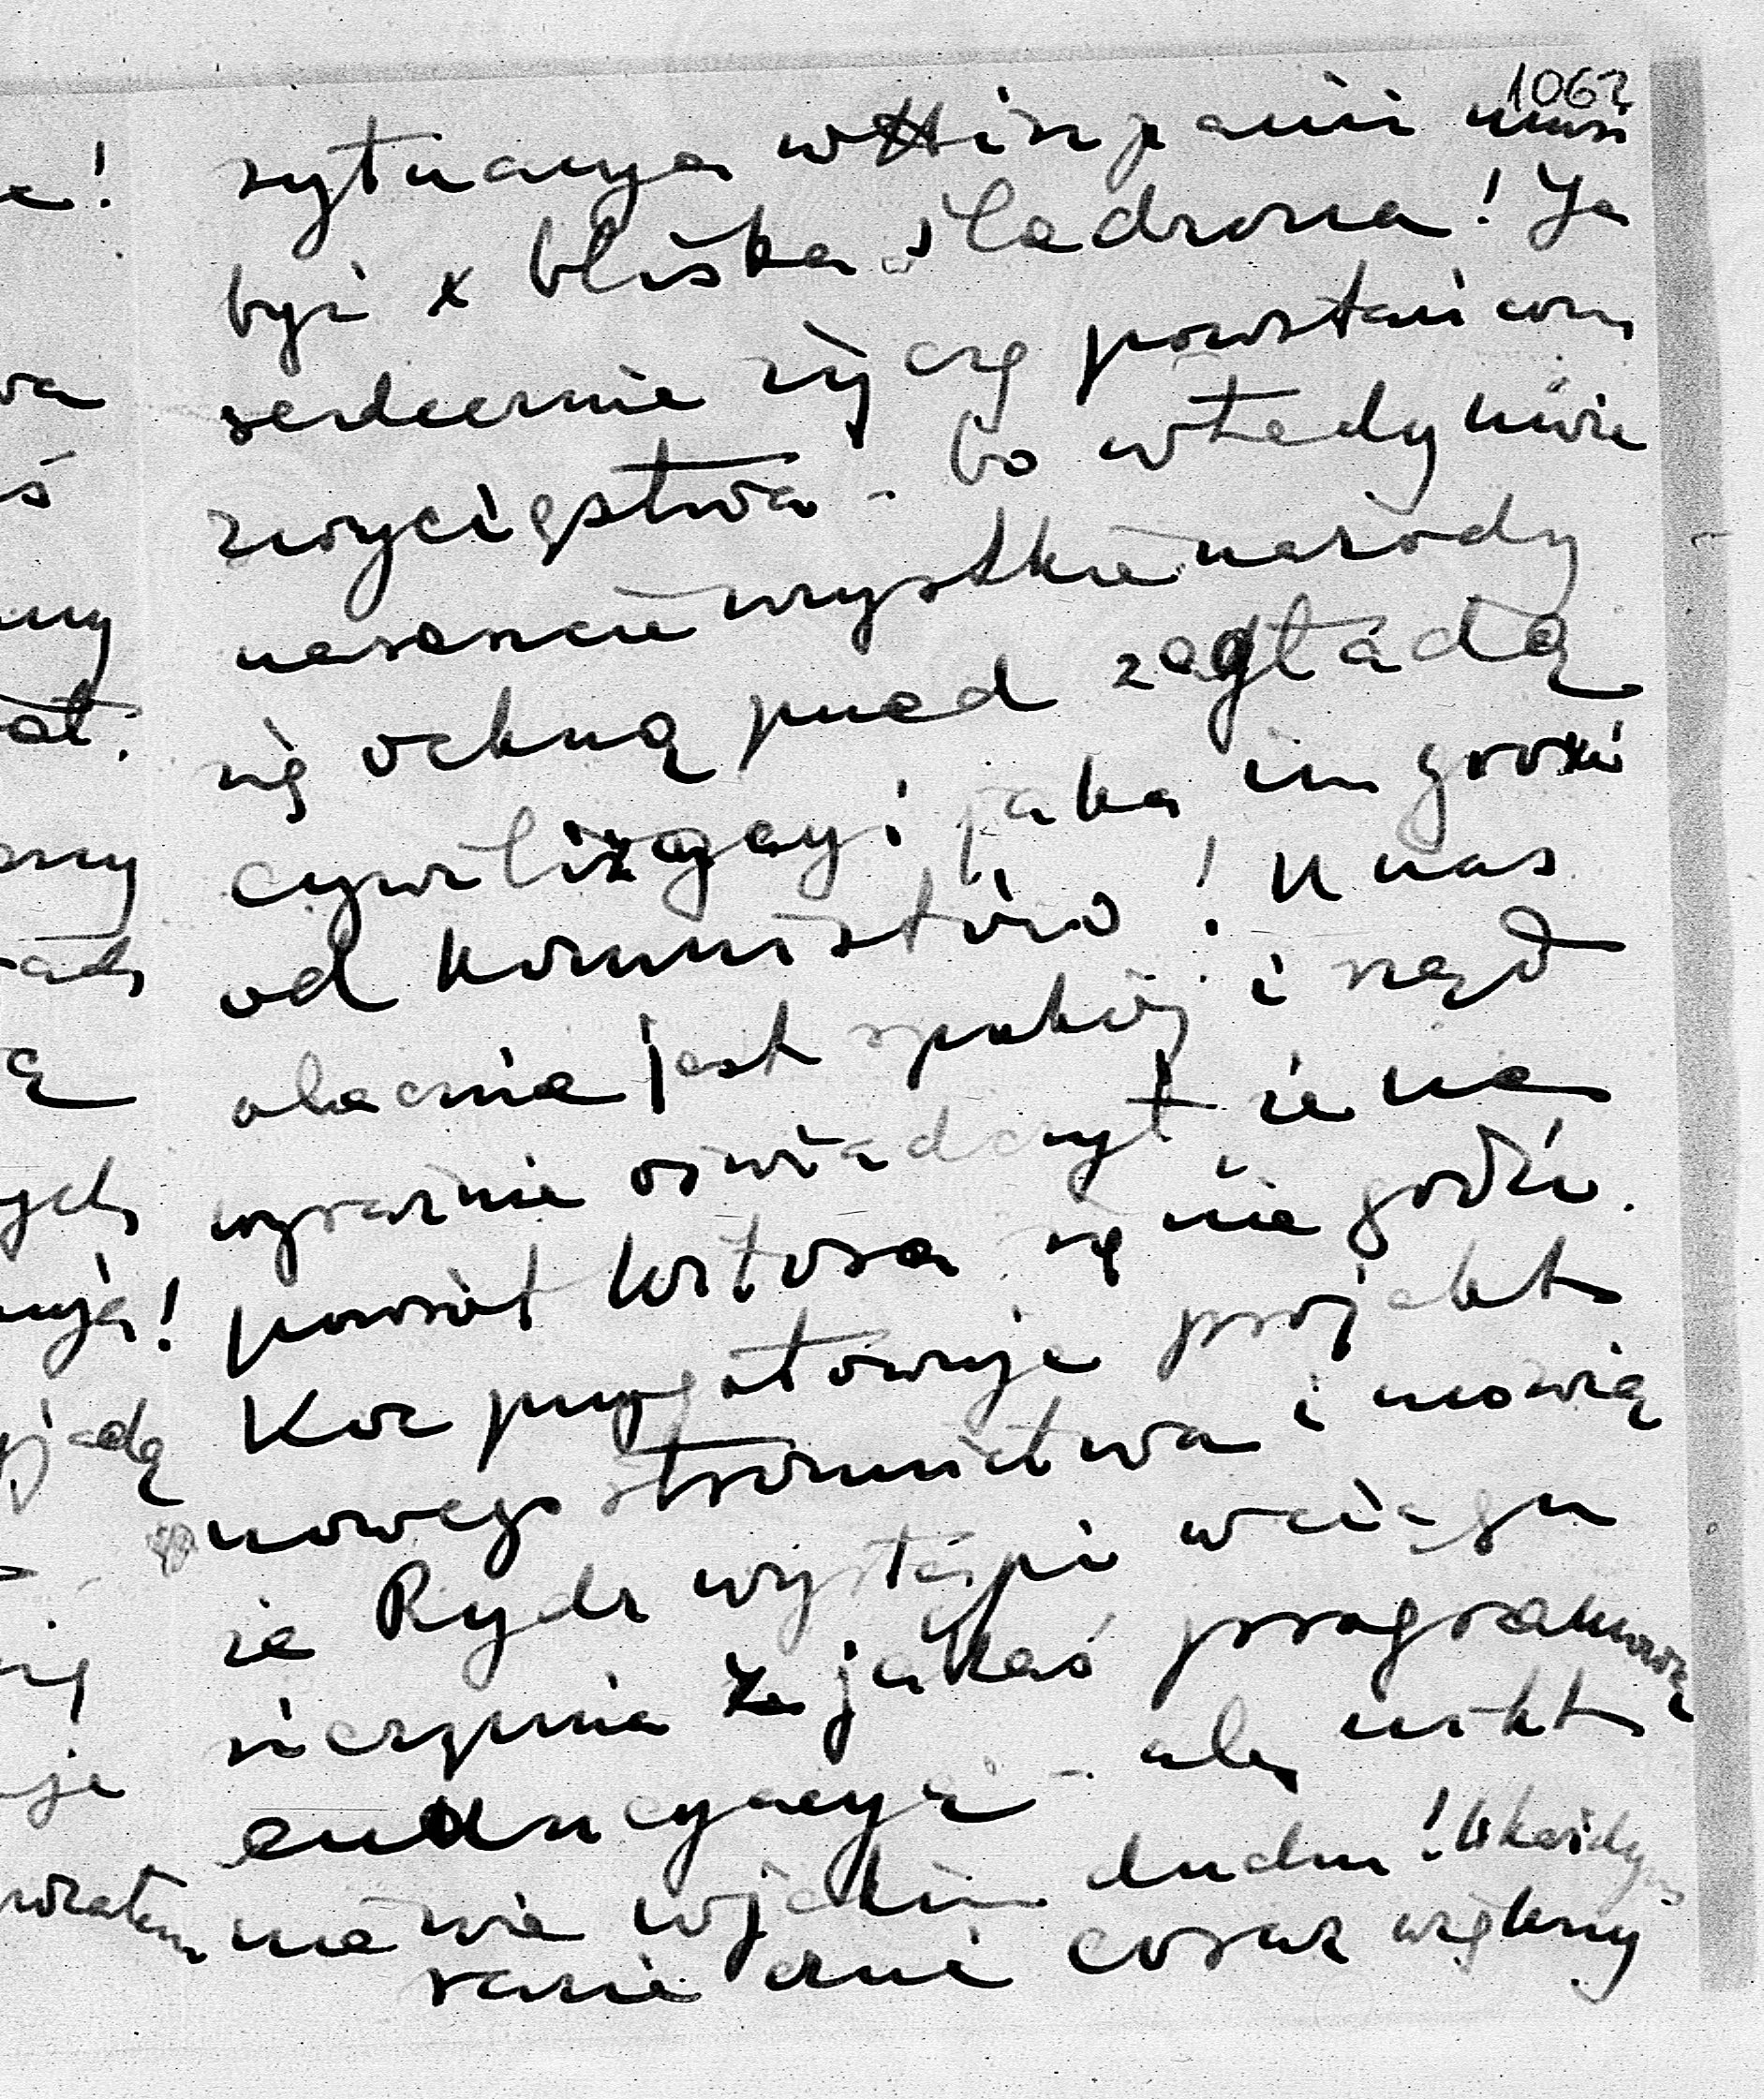 1062
sytuacya w Hiszpanii musi
być z bliska śledzona! Ja
serdecznie życzę powstańcom
zwycięstwa - bo wtedy może
nareszcie wszystkie narody
się ockną przed zagładą
cywilizacyi jaka im grozi
od komunistów! U nas
obecnie jest spokój i rząd
wyraźnie oświadczył że na
powrót Witosa się nie godzi.
Koc przygotowuje projekt
nowego stronnictwa i mówią
że Rydz wystąpi w ciągu
sierpnia z jakąś programową
enuncyacyą - ale nikt
nie wie w jakim duchu! W każdym
razie coraz większy